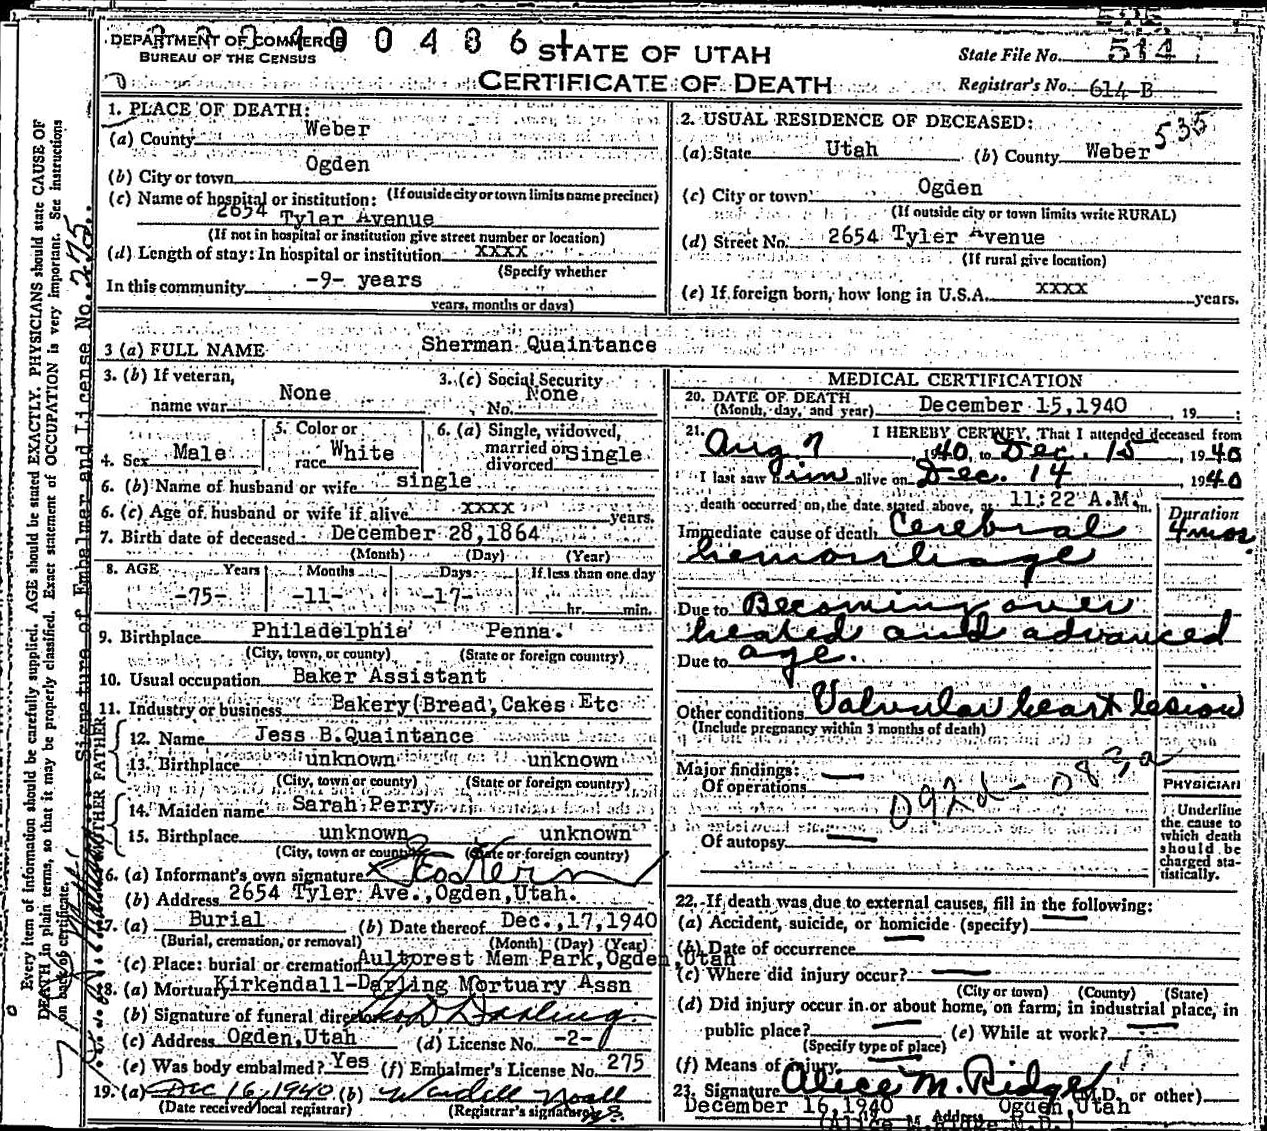 DEPARTMENT OF COMMERCE
BUREAU OF THE CENSUS
STATE OF UTAH
CERTIFICATE OF DEATH
State File No. 514
Registrar's No. 614-B
1. PLACE OF DEATH:
(a) County Weber
(b) City or town Ogden
(If outside city or town limits name precinct)
(c) Name of hospital or institution:
2654 Tyler Avenue
(If not in hospital or institution give street number or location)
(d) Length of stay: In hospital or institution XXXX
(Specify whether
In this community -9- years
years, months or days)
2. USUAL RESIDENCE OF DECEASED:
535
(a) State Utah (b) County Weber
(c) City or town Ogden
(If outside city or town limits write RURAL)
(d) Street No. 2654 Tyler Avenue
(If rural give location)
(e) If foreign born, how long in U.S.A. XXXX years.
3 (a) FULL NAME Sherman Quaintance
3. (b) If veteran, name war None
3. (c) Social Security No. None
4. Sex Male
5. Color or race White
6. (a) Single, widowed, married or divorced Single
6. (b) Name of husband or wife single
6. (c) Age of husband or wife if alive XXXX years.
7. Birth date of deceased December 28, 1864
(Month) (Day) (Year)
8. AGE Years Months Days If less than one day
-75- -11- -17- hr. min.
9. Birthplace Philadelphia Penna.
(City, town, or county) (State or foreign country)
10. Usual occupation Baker Assistant
11. Industry or business Bakery(Bread, Cakes Etc
FATHER
12. Name Jess B.Quaintance
13. Birthplace unknown unknown
(City, town or county) (State or foreign country)
MOTHER
14. Maiden name Sarah Perry
15. Birthplace unknown unknown
(City, town or county) (State or foreign country)
16. (a) Informant's own signature
(b) Address 2654 Tyler Ave., Ogden, Utah.
17. (a) Burial (b) Date thereof Dec., 17, 1940
(Burial, cremation, or removal) (Month) (Day) (Year)
(c) Place: burial or cremation Aultorest Mem Park, Ogden, Utah
18. (a) Mortuary Kirkendall-Darling Mortuary Assn
(b) Signature of funeral director Darling
(c) Address Ogden, Utah (d) License No. -2-
(e) Was body embalmed? Yes (f) Embalmer's License No. 275
19. (a) Dec 16, 1940 (b)
(Date received local registrar) (Registrar's signature)
MEDICAL CERTIFICATION
20. DATE OF DEATH
(Month, day, and year) December 15, 1940, 19 ;
21. I HEREBY CERTIFY, That I attended deceased from
Aug 7, 1940, to Dec. 15, 1940
I last saw him alive on Dec. 14 1940
death occurred on the date stated above, at 11:22 A.M. m.
Duration
Immediate cause of death Cerebral 4 mos.
hemorrhage
Due to Becoming over
heated and advanced
Due to age.
Other conditions Valvular heart lesion
(Include pregnancy within 3 months of death)
Major findings:
Of operations
Of autopsy
PHYSICIAN
Underline
the cause to
which death
should be
charged sta-
tistically.
22. If death was due to external causes, fill in the following:
(a) Accident, suicide, or homicide (specify)
(b) Date of occurrence
(c) Where did injury occur?
(City or town) (County) (State)
(d) Did injury occur in or about home, on farm, in industrial place, in
public place? (e) While at work?
(Specify type of place)
(f) Means of injury
23. Signature Alice M. Ridge (M.D. or other)
December 16, 1940 Address Ogden, Utah
(Alice M.Ridge M.D.)
Every item of information should be carefully supplied. AGE should be stated EXACTLY. PHYSICIANS should state CAUSE OF
DEATH in plain terms, so that it may be properly classified. Exact statement of OCCUPATION is very important. See instructions
on back of certificate.
Signature of Embalmer and License No. 275